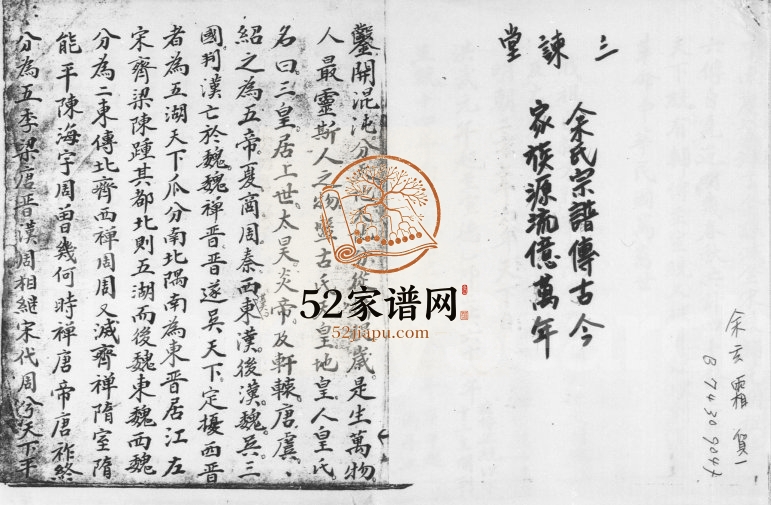 三諫堂
余氏宗譜傳古今
家族源流億萬年
余亥霜
鑿開混沌分歲是生萬物。
人最靈斯人之物盤古氏天皇地皇。人皇氏。
名曰三皇。居上世太昊炎帝。及軒轅。唐虞、
紹之為五帝夏商周秦。西東漢。後漢魏。吳。三
國判漢亡於魏。魏禪晉晉遂吳天下。定擾西晉
者為五湖天下瓜分南北隅南為東晉居江左
宋齊梁陳踵其都北則五湖而後魏東魏西魏
分為二東傳北齊西禪周周又滅齊禪隋室隋
能平陳海宇周曾幾何時禪唐帝唐祚終
分為五季梁唐晉漢周相継宋代周兮天下平
52家谱网
52jiapu.com